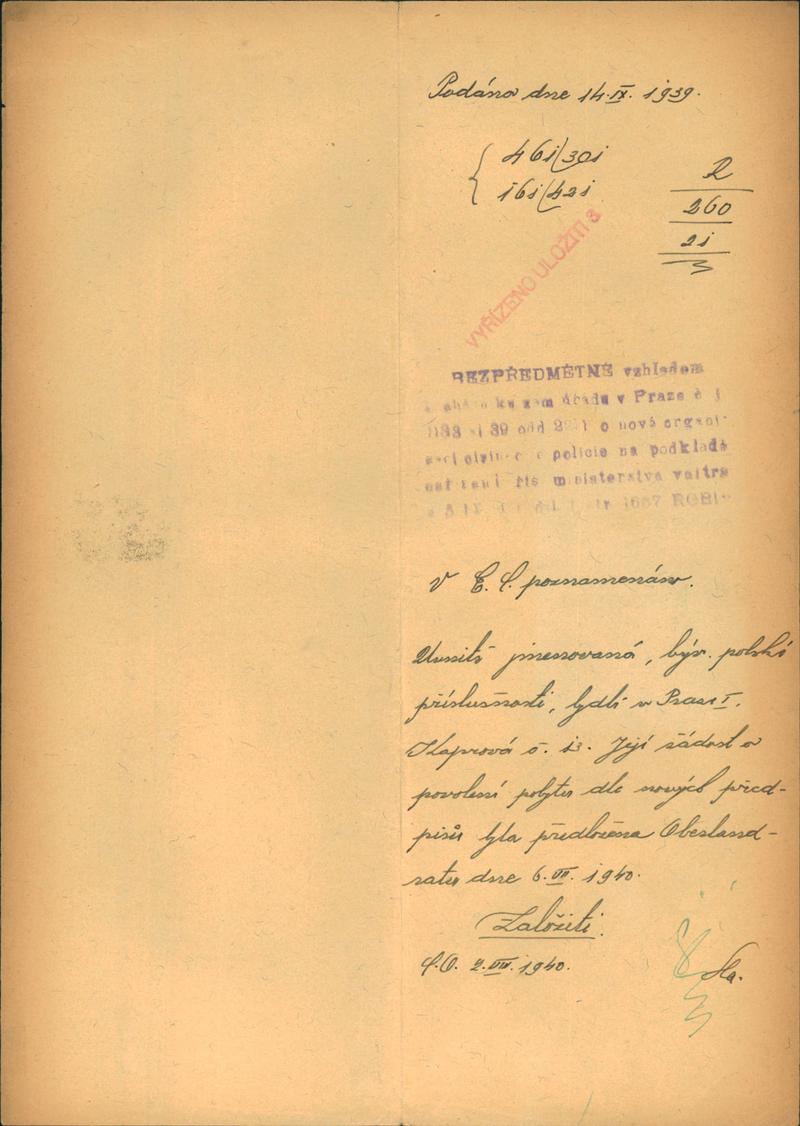 Podáno dne 14.IX. 1939.
46i/30i
16i/42i
R
260
2i
VYŘÍZENO ULOŽITI 3
BEZPŘEDMĚTNÉ vzhledem
ku zem úřadu v Praze č j
39 odd o nové organi
policie na podkladě
ministerstva vnitra
1667 RGBl
V E. L. poznamenáno.
Uvnitř jmenovaná, býv. polské
příslušnosti, bydlí v Praze I.
Kaprova č. 13. Její žádost o
povolení pobytu dle nových před-
pisů byla předložena Oberland-
ratu dne 6.VII. 1940.
Založiti.
2.VIII. 1940.
Ha.